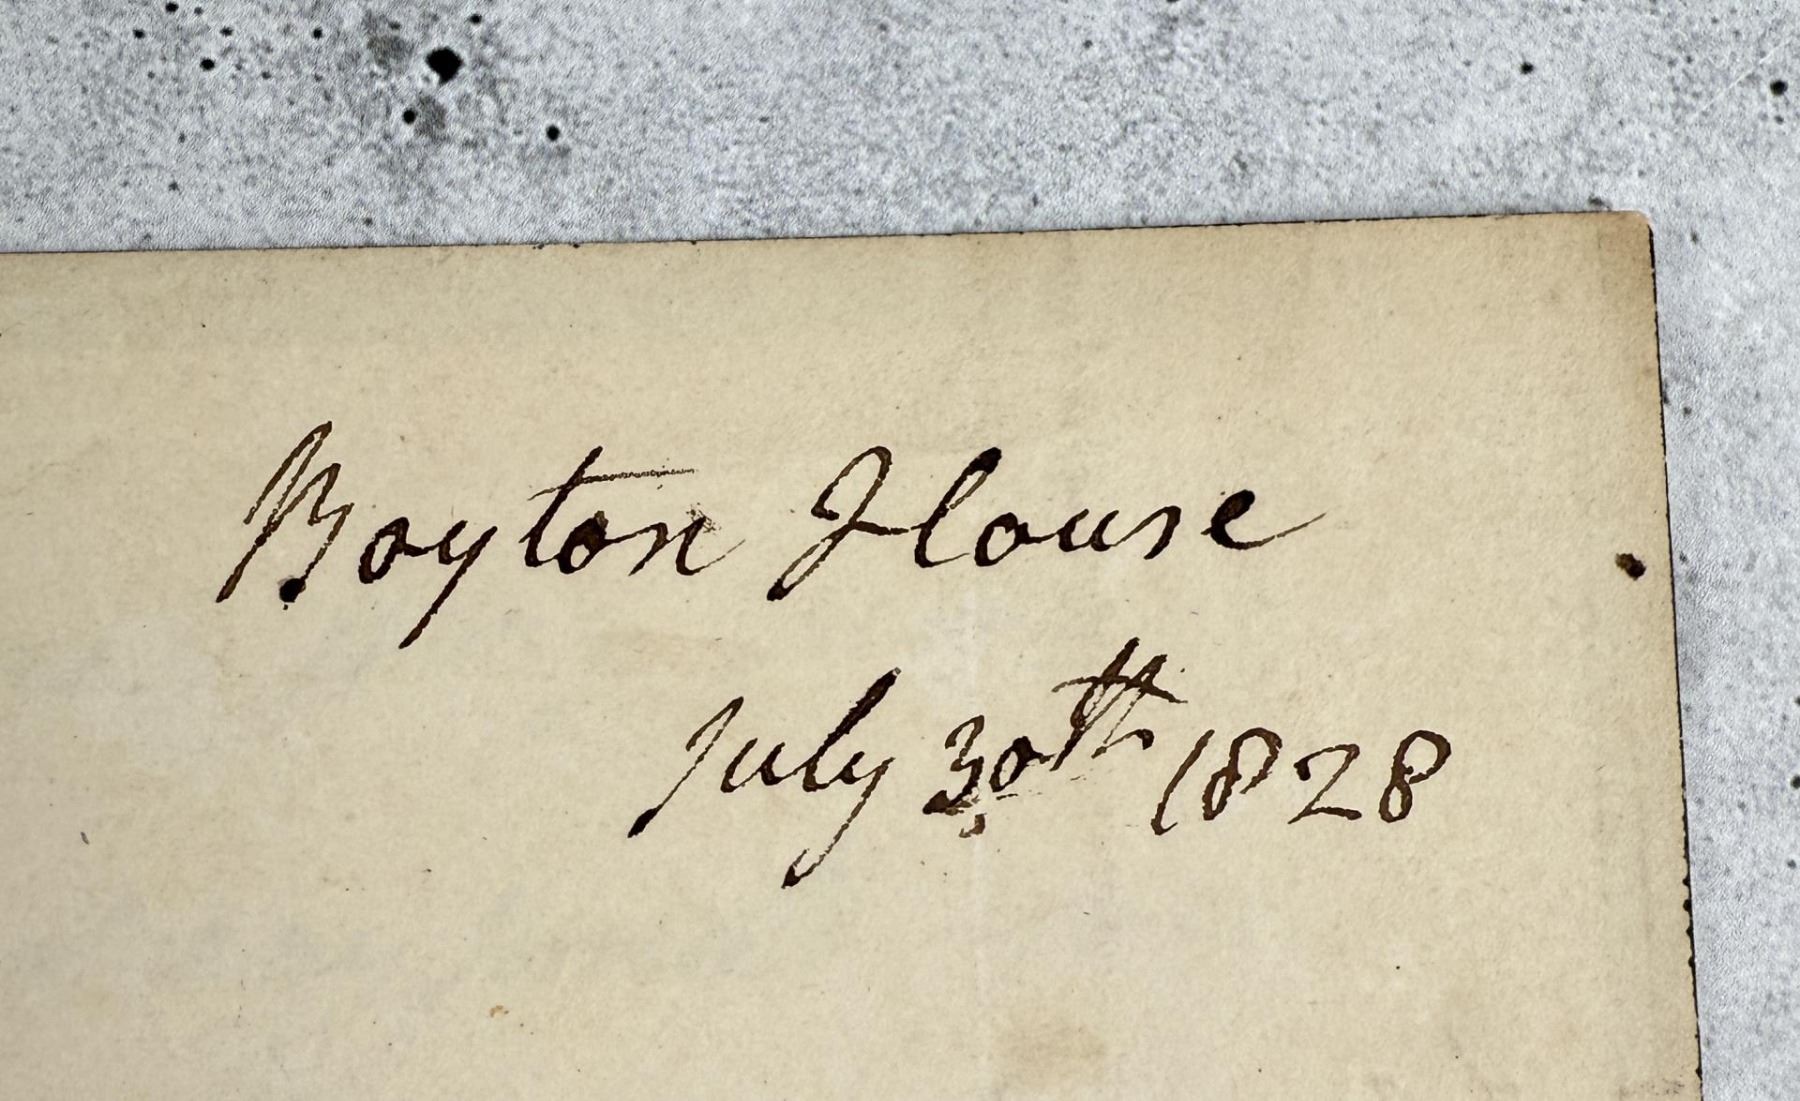 Boyton House
July 30th 1828